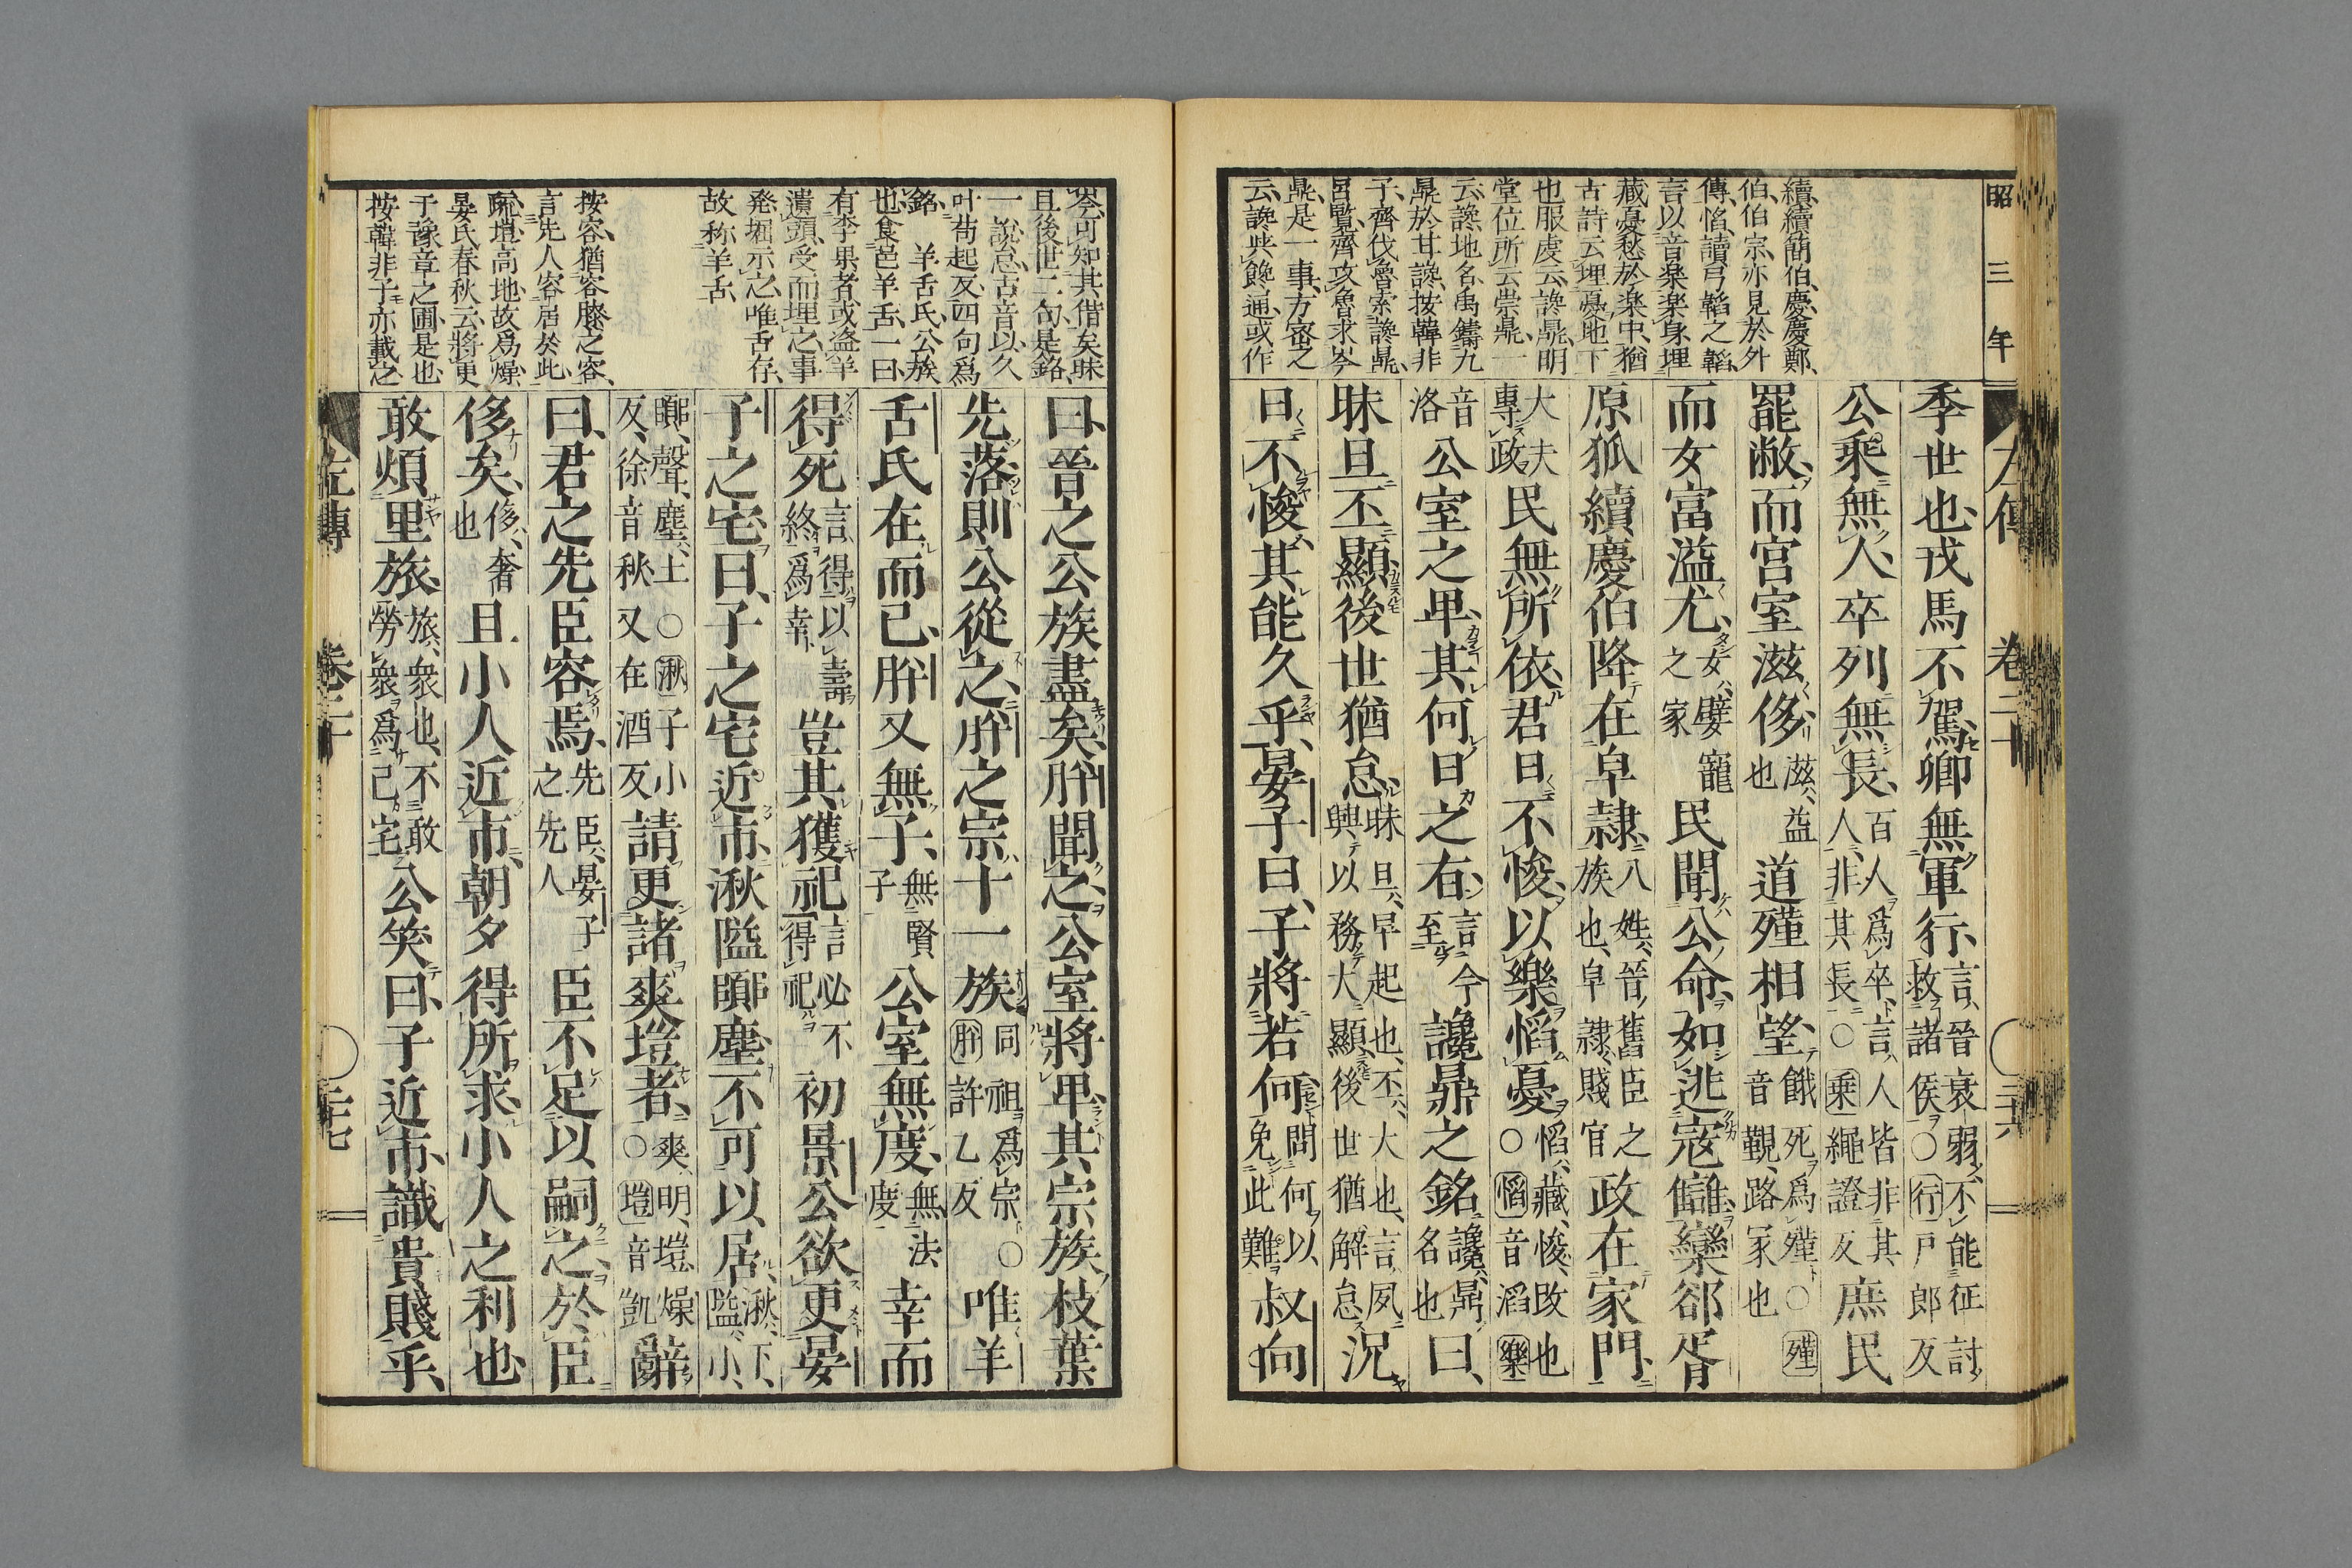 昭三年
左傳 卷二十 ○ 三十六
續續簡伯慶慶鄭
伯伯宗亦見於外
傳慆讀弓韜之韜
言以音楽楽身埋
藏憂愁於楽中猶
古詩云埋憂地下
也服虔云讒鼎明
堂位所云崇鼎一
云讒地名禹鑄九
鼎於甘讒按韓非
子齊伐魯索讒鼎
呂覽齊攻魯求岑
鼎是一事方密之
云讒㷊饞通或作
季世也戎馬不駕卿無軍行言晉衰弱不能征討救諸侯○行戸郎反
公乘無人卒列無長百人爲卒言人皆非其人非其長○乘繩證反庶民
罷敝而宮室滋侈滋益也道殣相望餓死爲殣○殣音覲路冢也
而女富溢尤女嬖寵之家民聞公命如逃寇讎欒郤胥
原狐續慶伯降在皁隷八姓晉舊臣之族也皁隷賤官政在家門
大夫專政民無所依君日不悛以樂慆憂慆藏悛改也○慆音滔樂
音洛公室之卑其何日之有言今至讒鼎之銘讒鼎名也曰
昧旦丕顯後世猶怠昧旦早起也丕大也言夙興以務大顯後世猶解怠況
日不悛其能久乎晏子曰子將若何問何以免此難叔向
岑可知其偕矣昧
且後世二句是銘
一說怠古音以久
叶茍起反四句爲
銘 羊舌氏公族
也食邑羊舌一曰
有李果者或盗羊
遺頭受而埋之事
発堀示之唯舌存
故称羊舌
按容猶容膝之容
言先人容居於此
䟽塏高地故爲燥
晏氏春秋云將更
于豫章之圃是也
按韓非子亦載之
曰晉之公族盡矣肸聞之公室將卑其宗族枝葉
先落則公從之肸之宗十一族同祖爲宗○肸許乙反唯羊
舌氏在而已肸又無子無賢子公室無度無法度幸而
得死言得以壽終爲幸豈其獲祀言必不得祀初景公欲更晏
子之宅曰子之宅近市湫隘囂塵不可以居湫下隘小
囂聲塵土○湫子小反徐音秋又在酒反請更諸爽塏者爽明塏燥○塏音凱辭
曰君之先臣容焉先臣晏子之先人臣不足以嗣之於臣
侈矣侈奢也且小人近市朝夕得所求小人之利也
敢煩里旅旅衆也不敢勞衆爲己宅公笑曰子近市識貴賤乎
左傳 卷二十 ○ 三十七